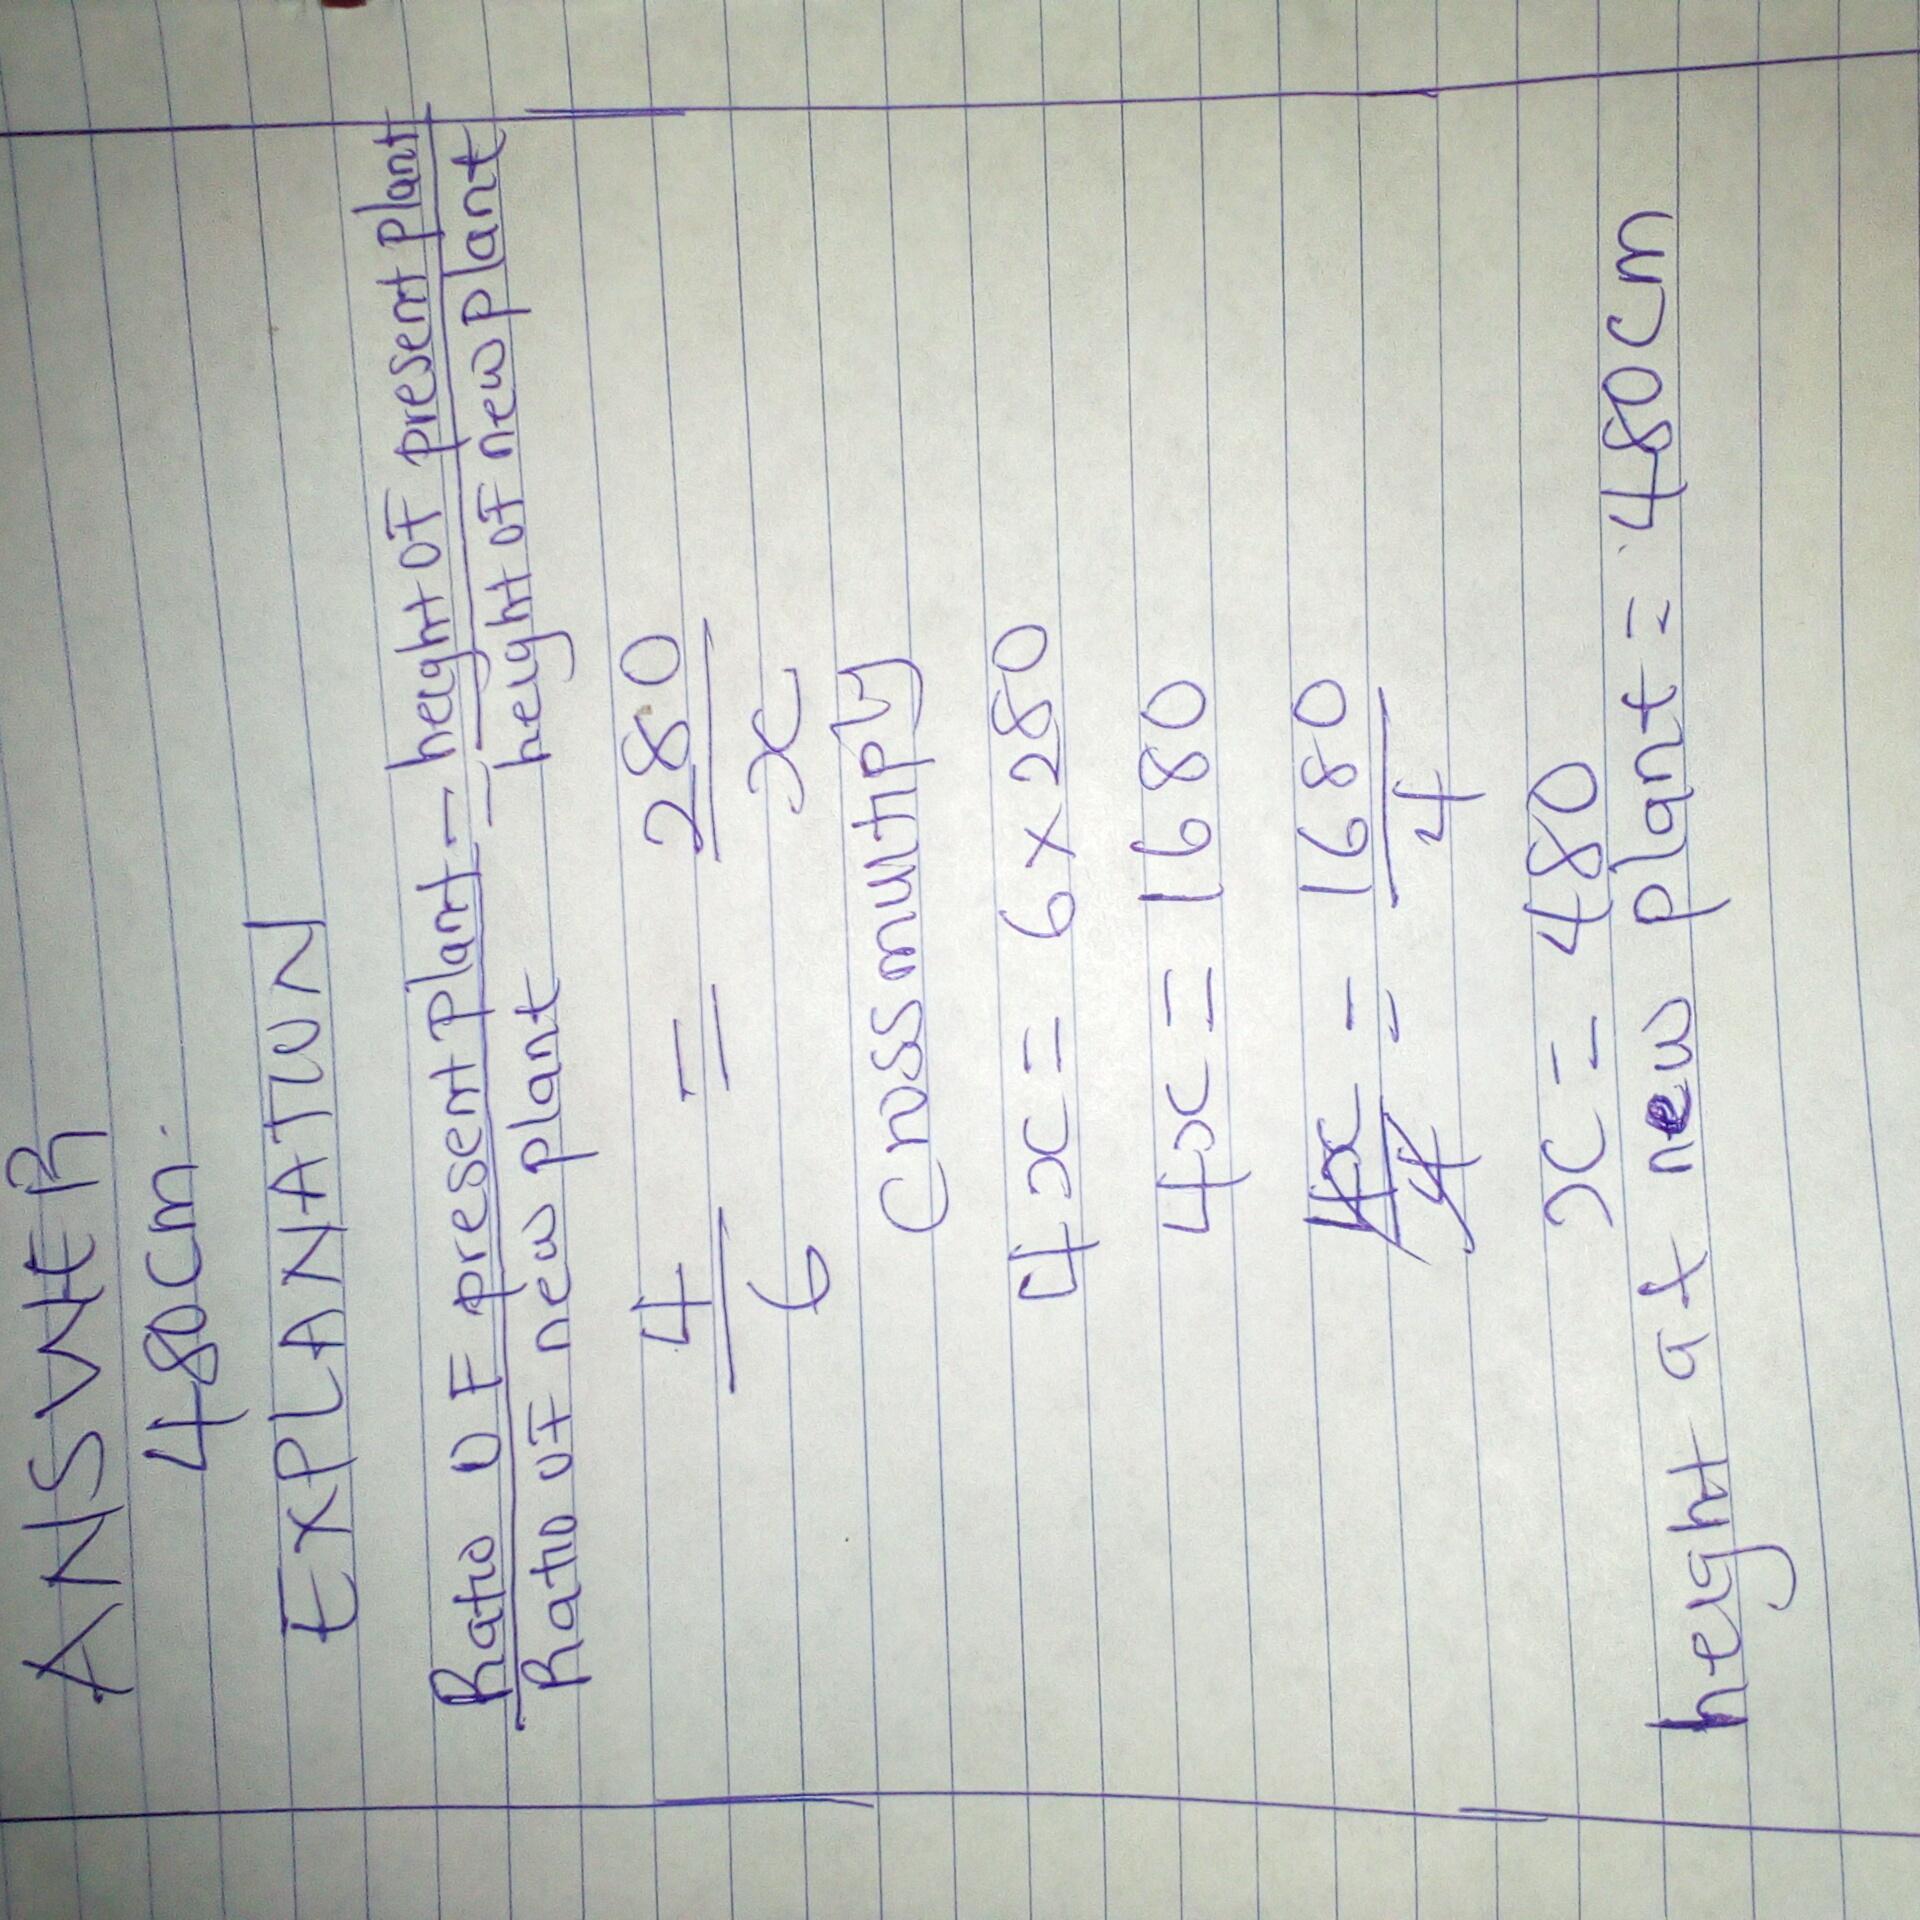 ANSWER
480cm.
EXPLANATION
Ratio OF present plant = height OF present plant
Ratio OF new plant height OF new plant
4 = 280
6 x
Crossmultiply
4x = 6 x 280
4x = 1680
4x = 1680
4 4
x = 480
height of new plant = 480cm